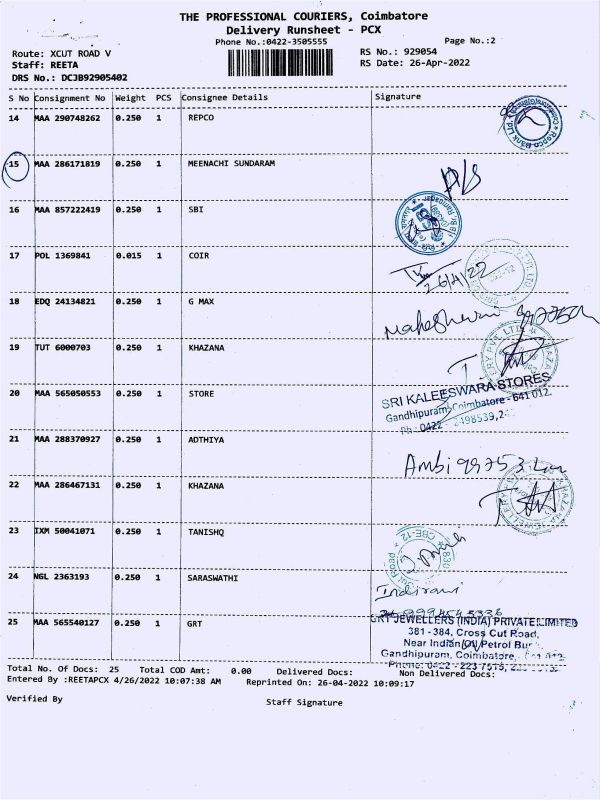 THE PROFESSIONAL COURIERS, Coimbatore
Delivery Runsheet - PCX
Phone No.:0422-3505555
Page No.:2
Route: XCUT ROAD V
RS No.: 929054
Staff: REETA
RS Date: 26-Apr-2022
DRS No.: DCJB92905402
S No Consignment No Weight PCS Consignee Details Signature
14 MAA 290748262 0.250 1 REPCO
Repco Bank Ltd
15 MAA 286171819 0.250 1 MEENACHI SUNDARAM
16 MAA 857222419 0.250 1 SBI
17 POL 1369841 0.015 1 COIR
26/4/22
18 EDQ 24134821 0.250 1 G MAX
Maheshwari
19 TUT 6000703 0.250 1 KHAZANA
20 MAA 565050553 0.250 1 STORE
SRI KALEESWARA STORES
Gandhipuram, Coimbatore - 641 012.
Ph : 0422 - 2498539,
21 MAA 288370927 0.250 1 ADTHIYA
Ambi
22 MAA 286467131 0.250 1 KHAZANA
23 IXM 50041071 0.250 1 TANISHQ
CBE-12
24 NGL 2363193 0.250 1 SARASWATHI
Indirani
25 MAA 565540127 0.250 1 GRT
GRT JEWELLERS (INDIA) PRIVATE LIMITED
381 - 384, Cross Cut Road,
Near Indian Oil Petrol
Gandhipuram, Coimbatore,
Phone: 0422 - 223 7515,
Total No. Of Docs: 25 Total COD Amt: 0.00 Delivered Docs: Non Delivered Docs:
Entered By :REETAPCX 4/26/2022 10:07:38 AM Reprinted On: 26-04-2022 10:09:17
Verified By Staff Signature